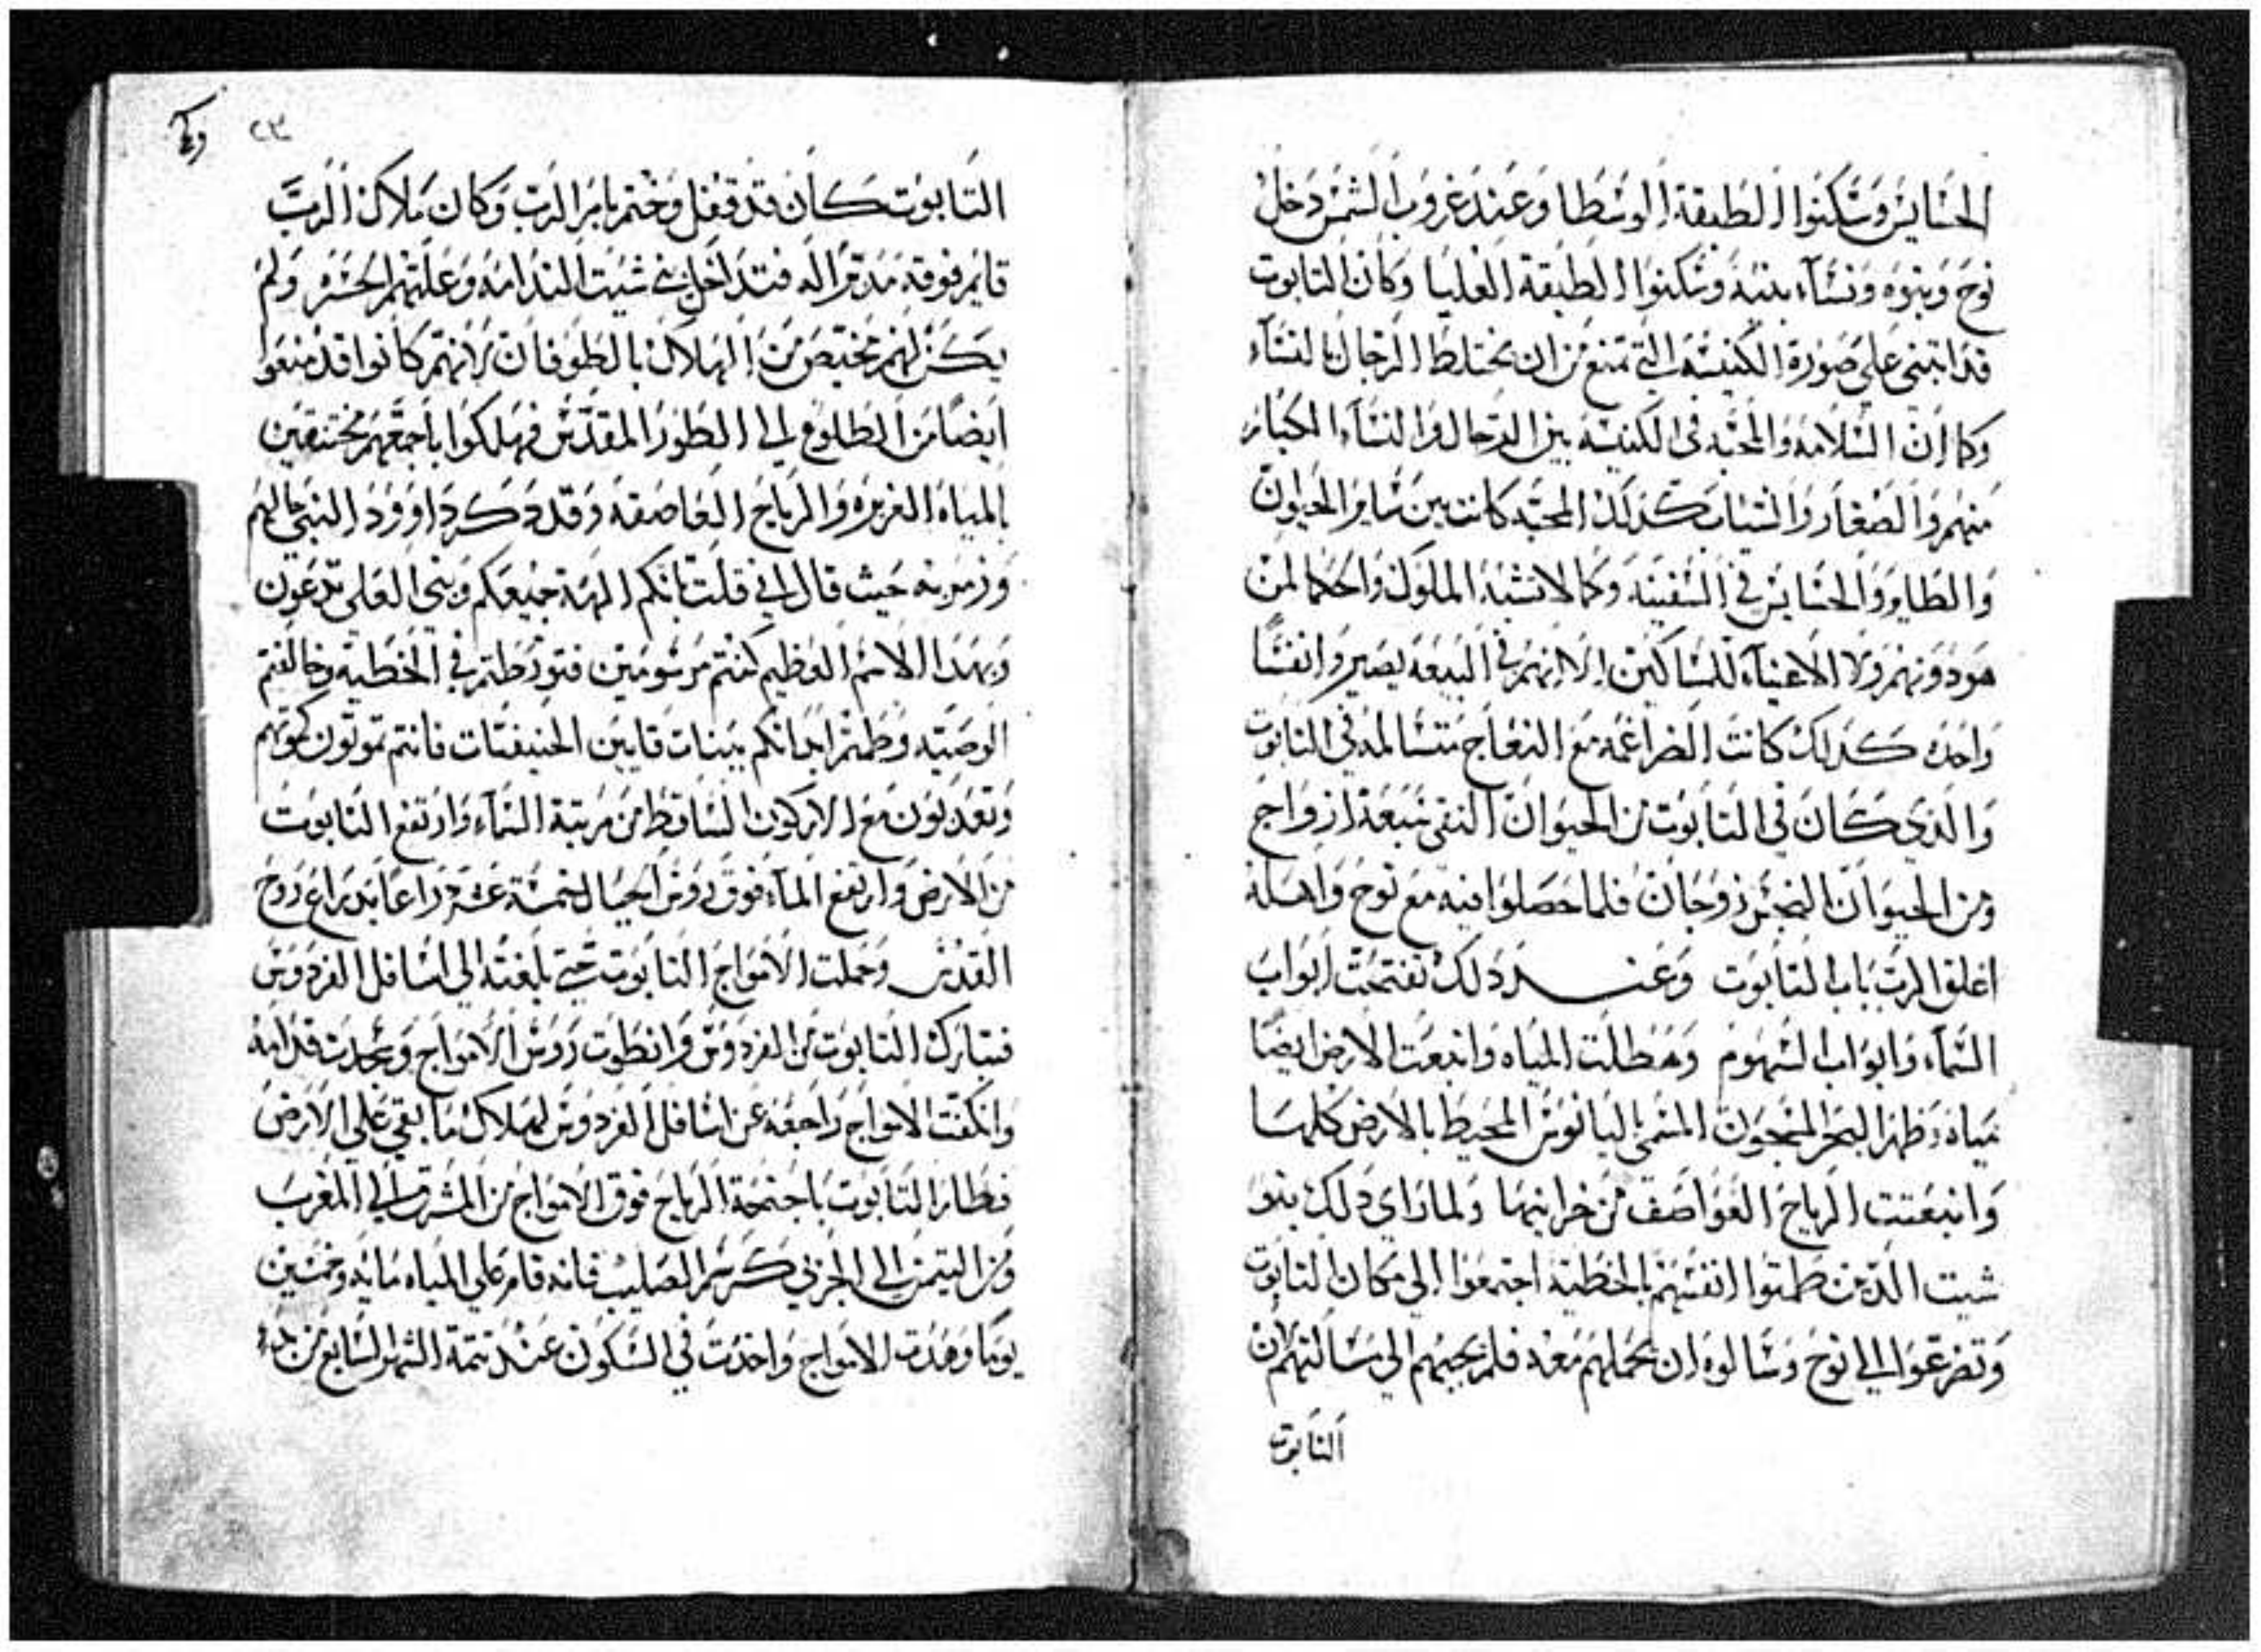 الحساير وسكنوا الطبقة الوسطا وعند غروب الشمس دخل
نوح وبنوه ونساء بنيه وسكنوا الطبقة العليا وكان التابوت
قد ابتنى على صورة الكنيسه التي تمنع من ان يختلط الرجال بالنساء
وكما ان السلامه والمحبه في الكنيسه بين الرجال والنساء الكبار
منهم والصغار والشباب كذلك المحبه كانت بين ساير الحيوان
والطاير والحساير في السفينه وكما لا تشبه الملوك والحكما لمن
هو دونهم ولا الاغنياء للمساكين الا انهم في البيعه يصيروا نفسا
واحده كذلك كانت الضراغمه مع النعاج متسالمه في التابوت
والذي كان في التابوت من الحيوان النقي سبعة ازواج
ومن الحيوان النجس زوجان فلما حصلوا فيه مع نوح واهله
اغلق الرب باب التابوت وعند ذلك تفتحت ابواب
السماء وابواب السهوم وهطلت المياه وانبعت الارض ايضا
مياه وظهر البحر المسجون المسمى اليانوس المحيط بالارض كلها
وانبعتت الرياح العواصف من خزاينها ولما راي ذلك بنو
شيت الذين طمتوا انفسهم بالخطية اجتمعوا الي مكان التابوت
وتضرعوا الي نوح وسالوه ان يحملهم معه فلم يجبهم الي مسالتهم لان
التابوت
٢٣
التابوت كان قد قفل وختم بامر الرب وكان ملاك الرب
قايم فوقه مدبرا له فتداخل بني شيت الندامه وعلتهم الحسره ولم
يكن لهم مخيص من الهلاك بالطوفان لانهم كانوا قد منعوا
ايضا من الطلوع الي الطور المقدس فهلكوا باجمعهم مختنقين
بالمياه الغزيره والرياح العاصفه وقد ذكر داوود النبي حالهم
وزموره حيث قال اني قلت بانكم الهة جميعكم وبني العلي تدعون
وبهدا الاسم العظيم كنتم مرسومين فتورطتم في الخطية وخالفتم
الوصيه وطمتم ابدانكم ببنات قايين الحنيفيات فانتم تموتون كموتهم
وتعذبون مع الاركون الساقط من مرتبة السماء وارتفع التابوت
من الارض وارتفع الماء فوق روس الجبال خمسة عشر دراعا بدراع روح
القدس وحملت الامواج التابوت حتي بلغته الي اسافل الفردوس
فتبارك التابوت من الفردوس وانطوت روس الامواج وسجدت قدامه
وانكفت الامواج راجعه عن اسافل الفردوس لهلاك ما بقي علي الارض
فطار التابوت باجنحة الرياح فوق الامواج من المشرق الي المغرب
ومن التيمن الي الجربي كرسم الصليب فانه قام علي المياه مايه وخمسين
يوما وهدت الامواج واخذت في السكون عند تتمة الشهر السابع من بدء